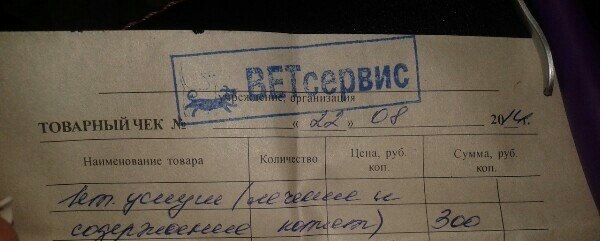 ВЕТсервис
учреждение, организация
ТОВАРНЫЙ ЧЕК № « 22 » 08 2014г.
Наименование товара Количество Цена, руб. коп. Сумма, руб. коп.
Вет. услуги (лечение и
содержание котят) 300